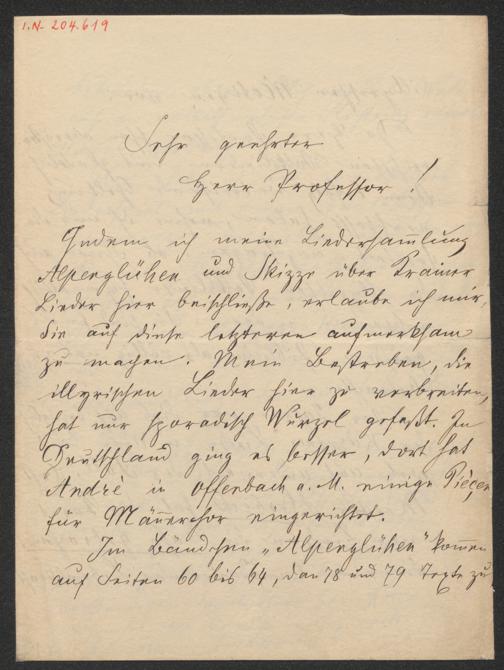 I.N. 204.619
Sehr geehrter
Herr Professor!
Indem ich meine Liedersam̅lung
Alpenglühen und Skizze über Krainer
Lieder hier beischließe, erlaube ich mir,
Sie auf diese letzteren aufmerksam
zu machen. Mein Bestreben, die
illyrischen Lieder hier zu verbreiten,
hat nur sporadisch Wurzel gefaßt. In
Deutschland ging es besser, dort hat
Andrè in Offenbach a. M. einige Pieçen
für Män̅erchor eingerichtet.
Im Bändchen „Alpenglühen" kom̅en
auf Seiten 60 bis 64, dan 78 und 79 Texte zu